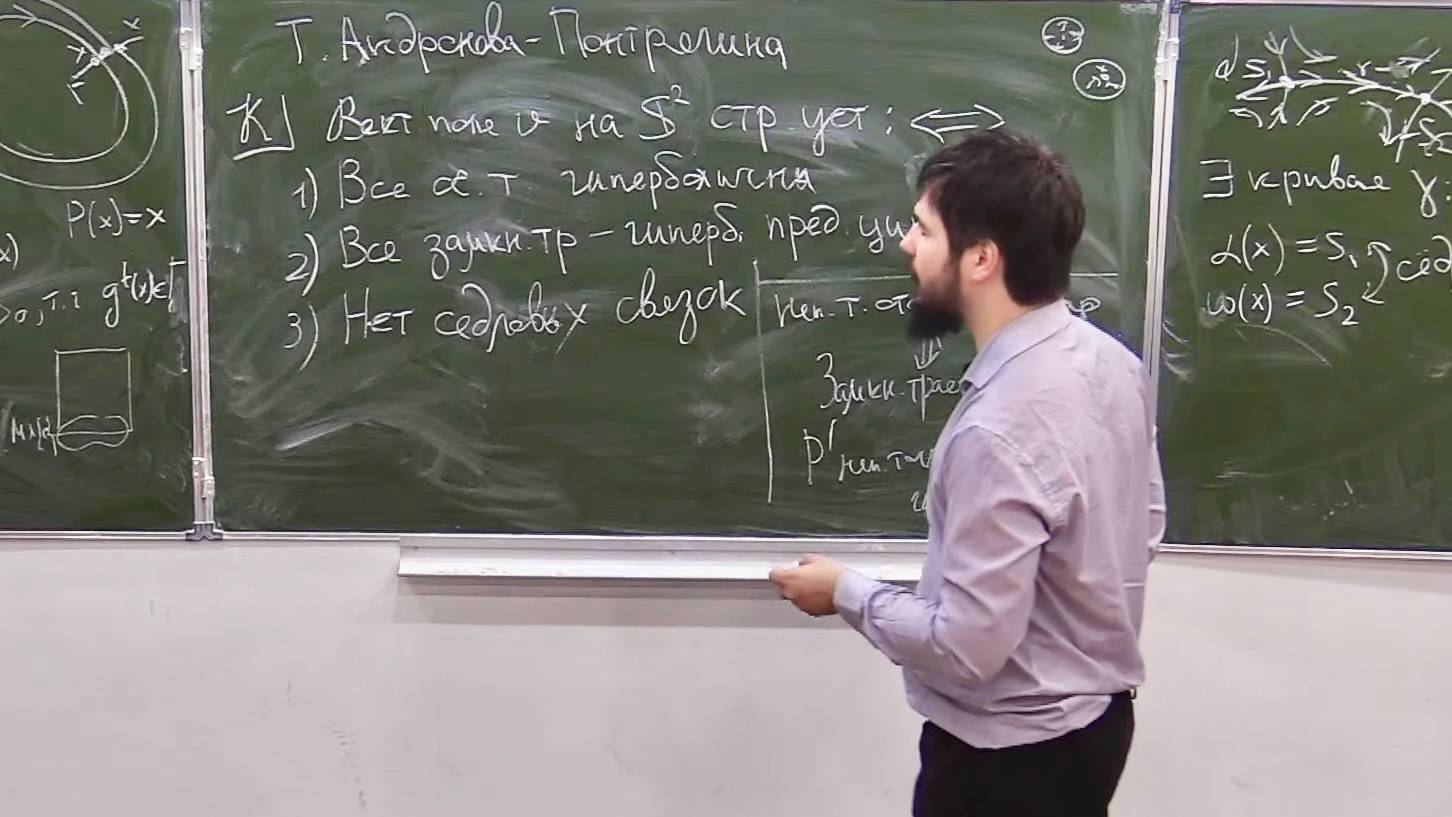 P(x)=x
g^t(x)∈Γ
Т. Андронова-Понтрягина
К] Вект поле v на S² стр. уст: ⟺
1) Все о.т. гиперболичны
2) Все замкн. тр – гиперб. пред. ци
3) Нет седловых связок
Неп. т. от
⇓
Замкн. трае
P'
неп. т
S₁
S₂
∃ кривая γ:
α(x) = S₁
сед
ω(x) = S₂